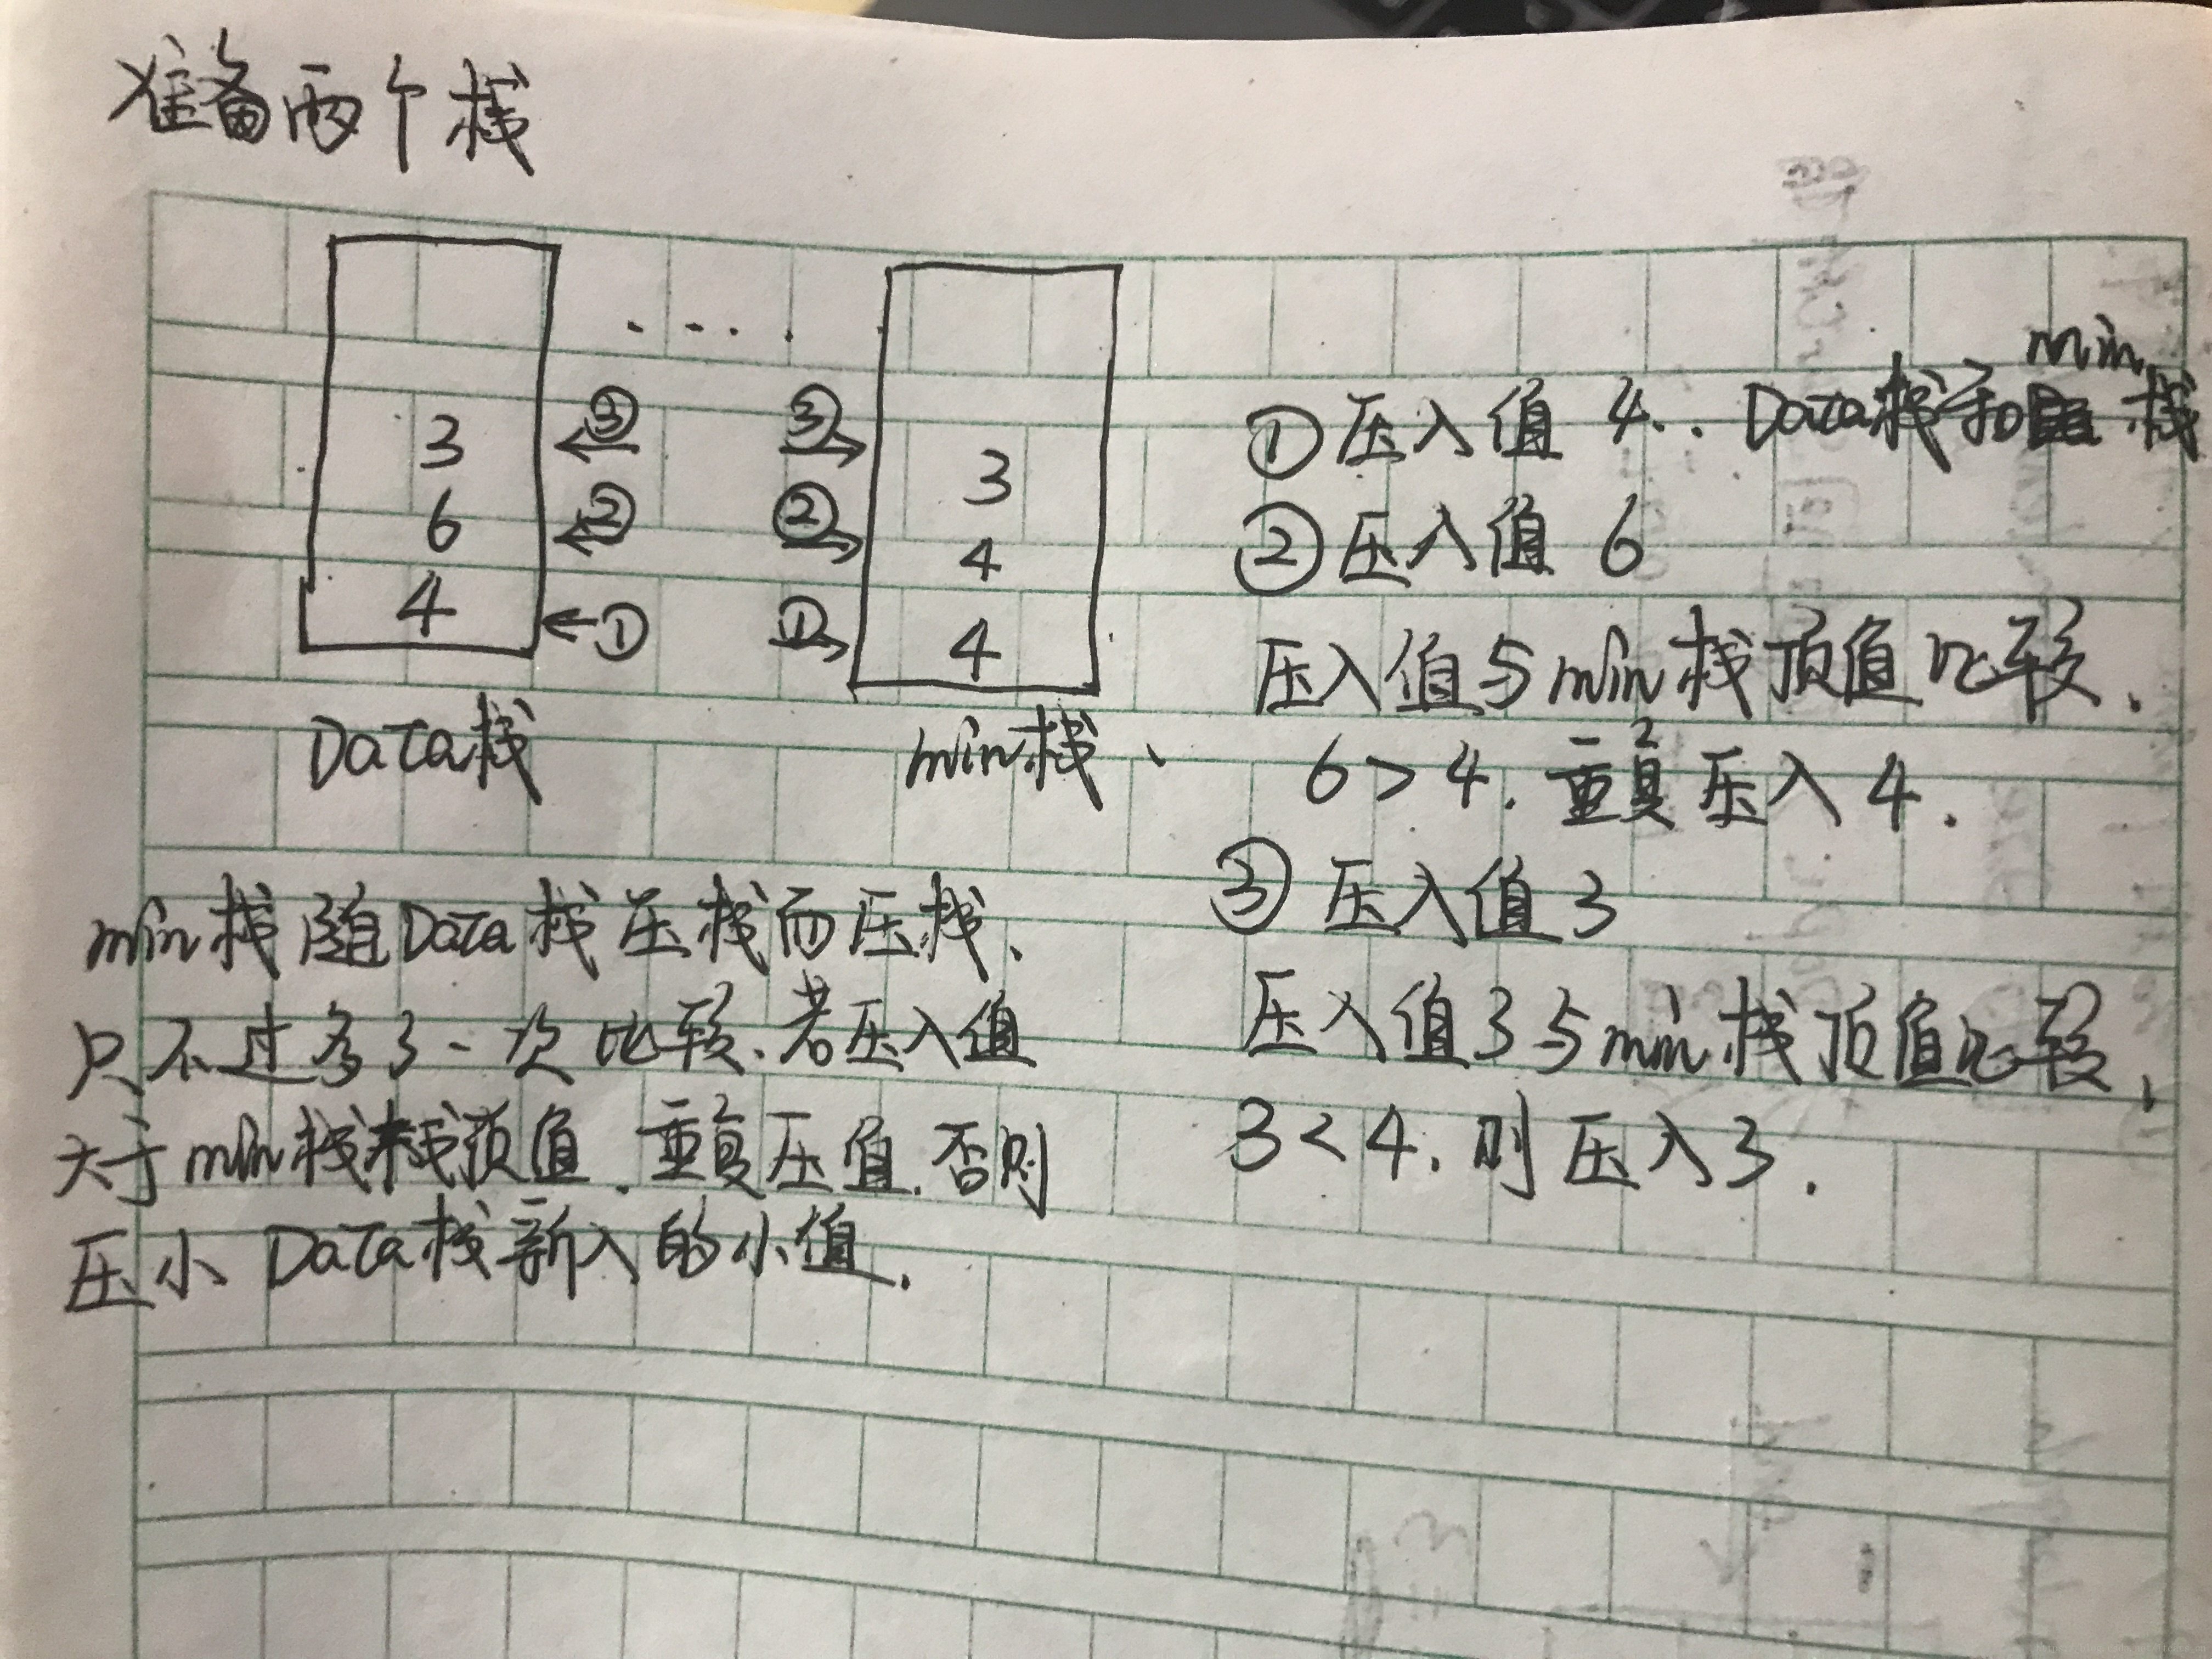 准备两个栈
....
3 ③ ③ 3
6 ② ② 4
4 ① ① 4
Data栈 min栈、
min栈随Data栈压栈而压栈、
只不过多了一次比较、若压入值
大于min栈栈顶值.重复压值.否则
压小Data栈新入的小值.
①压入值 4.. Data栈和min栈
②压入值 6
压入值与min栈顶值比较.
6>4.重复压入4.
③压入值3
压入值3与min栈顶值比较、
3<4.则压入3.